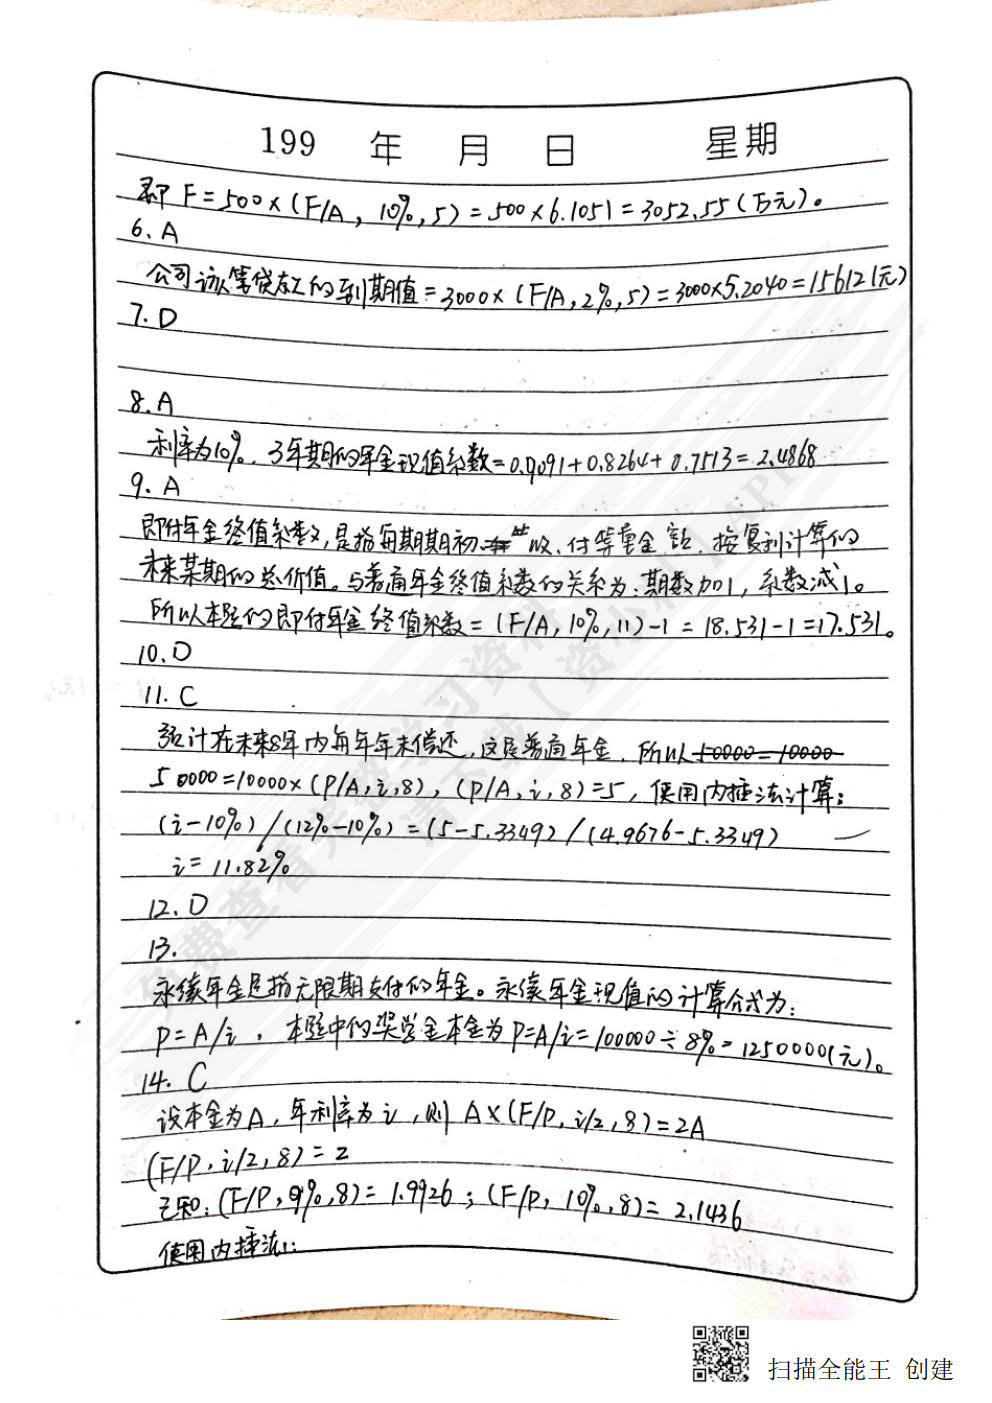 199 年 月 日 星期
即 F=500×(F/A, 10%, 5)=500×6.1051=3052.55(万元)。
6. A
公司该笔贷款的到期值=3000×(F/A,2%,5)=3000×5.2040=15612(元)
7. D
8. A
利率为10%, 3年期的年金现值系数=0.9091+0.8264+0.7513=2.4868
9. A
即付年金终值系数,是指每期期初 收、付等量金额、按复利计算的
未来某期的总价值。与普通年金终值系数的关系为:期数加1,系数减1。
所以本题的即付年金终值系数=(F/A,10%,11)-1=18.531-1=17.531。
10. D
11. C
预计在未来8年内每年年末偿还,这是普通年金,所以50000=10000
50000=10000×(P/A,i,8),(P/A,i,8)=5,使用内插法计算:
(i-10%)/(12%-10%)=(5-5.3349)/(4.9676-5.3349)
i=11.82%
12. D
13.
永续年金是指无限期支付的年金。永续年金现值的计算公式为:
P=A/i,本题中的奖学金本金为P=A/i=100000÷8%=1250000(元)。
14. C
设本金为A,年利率为i,则 A×(F/P,i/2,8)=2A
(F/P,i/2,8)=2
已知:(F/P,9%,8)=1.9926;(F/P,10%,8)=2.1436
使用内插法:
免费查看完整学习资料
请下载【资小料】APP
扫描全能王 创建